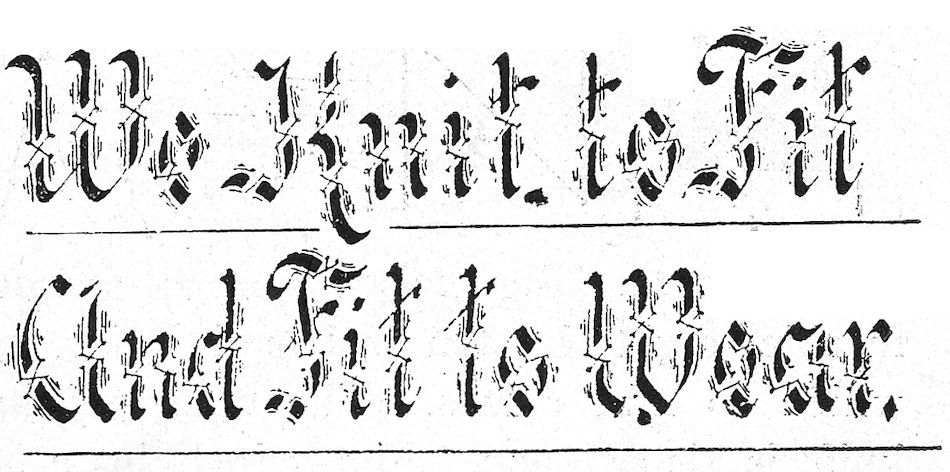 We Knit to Fit
And Fit to Wear.